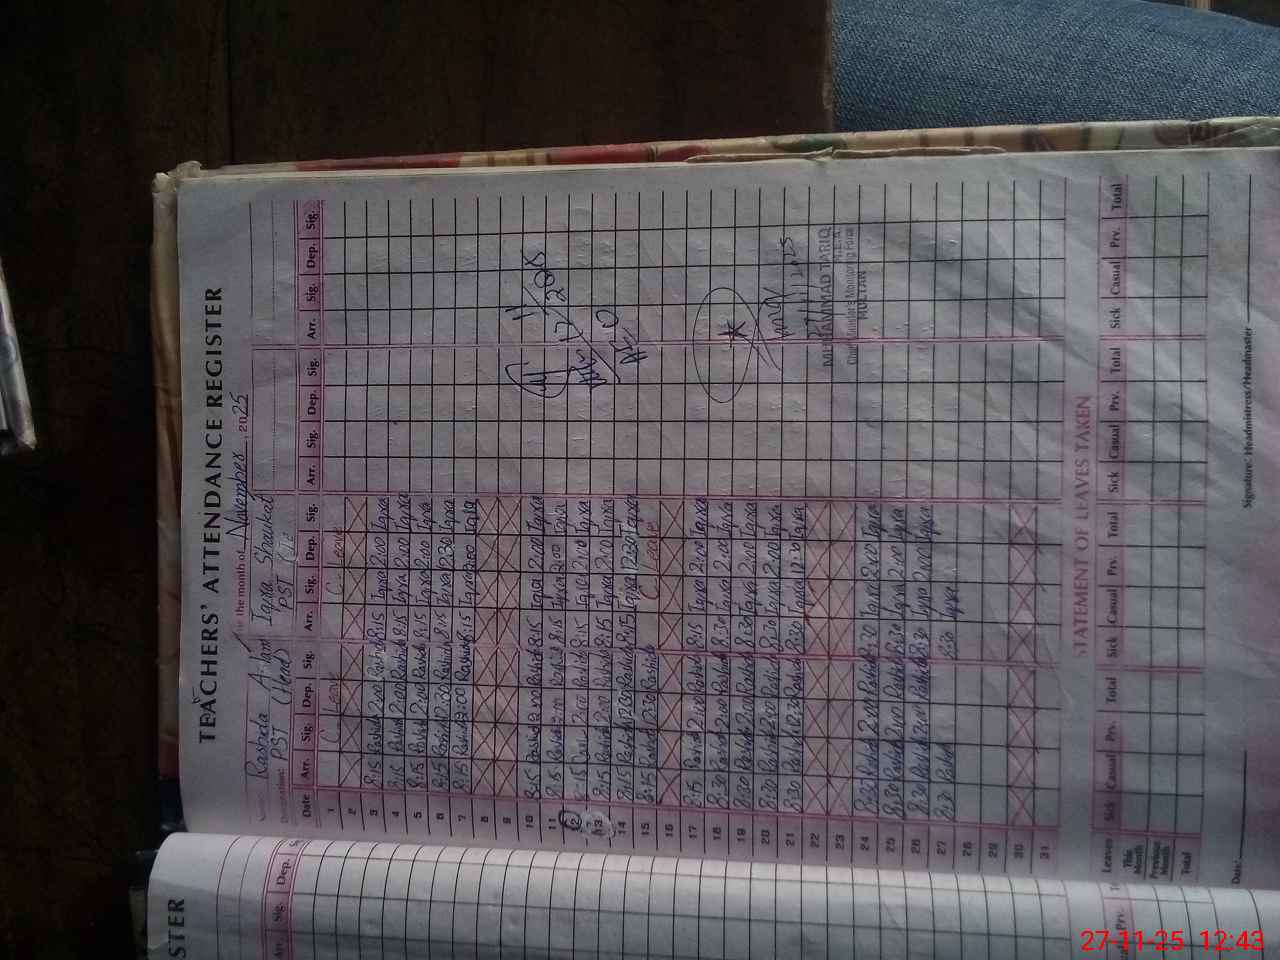 TEACHERS' ATTENDANCE REGISTER
the month of November, 2025
Rashida Arfan Iqra Shaukat
Designation: PST (Head) PST
Date Arr. Sig. Dep. Sig. Arr. Sig. Dep. Sig. Arr. Sig. Dep. Sig. Arr. Sig. Dep. Sig.
1 C. Leave C. Leave
2
3 8:15 Rashida 2:00 Rashida 8:15 Iqra 2:00 Iqra
4 8:15 Rashida 2:00 Rashida 8:15 Iqra 2:00 Iqra
5 8:15 Rashida 2:00 Rashida 8:15 Iqra 2:00 Iqra
6 8:15 Rashida 2:30 Rashida 8:15 Iqra 2:30 Iqra
7 8:15 Rashida 2:00 Rashida 8:15 Iqra 2:00 Iqra
8
9
10 8:15 Rashida 2:00 Rashida 8:15 Iqra 2:00 Iqra
11 8:15 Rashida 2:00 Rashida 8:15 Iqra 2:00 Iqra
12 8:15 2:00 Rashida 8:15 Iqra 2:00 Iqra
13 8:15 Rashida 2:00 Rashida 8:15 Iqra 2:00 Iqra
14 8:15 Rashida 12:30 Rashida 8:15 Iqra 12:30 Iqra
15 8:15 Rashida 12:30 Rashida C. Leave
16
17 8:15 Rashida 2:00 Rashida 8:15 Iqra 2:00 Iqra
18 8:30 Rashida 2:00 Rashida 8:30 Iqra 2:00 Iqra
19 8:30 Rashida 2:00 Rashida 8:30 Iqra 2:00 Iqra
20 8:30 Rashida 2:00 Rashida 8:30 Iqra 2:00 Iqra
21 8:30 Rashida 12:30 Rashida 8:30 Iqra 12:30 Iqra
22
23
24 8:30 Rashida 2:00 Rashida 8:30 Iqra 2:00 Iqra
25 8:30 Rashida 2:00 Rashida 8:30 Iqra 2:00 Iqra
26 8:30 Rashida 2:00 Rashida 8:30 Iqra 2:00 Iqra
27 8:30 Rashida 8:30 Iqra
28
29
30
31
MUHAMMAD TARIQ
M.E.A
Chief Minister's Monitoring Force
MULTAN
STATEMENT OF LEAVES TAKEN
Leaves Sick Casual Prv. Total Sick Casual Prv. Total Sick Casual Prv. Total Sick Casual Prv. Total
This Month
Previous Month
Total
Date: Signature: Headmistress/Headmaster
STER
Arr. Sig. Dep.
Prv.
27-11-25 12:43